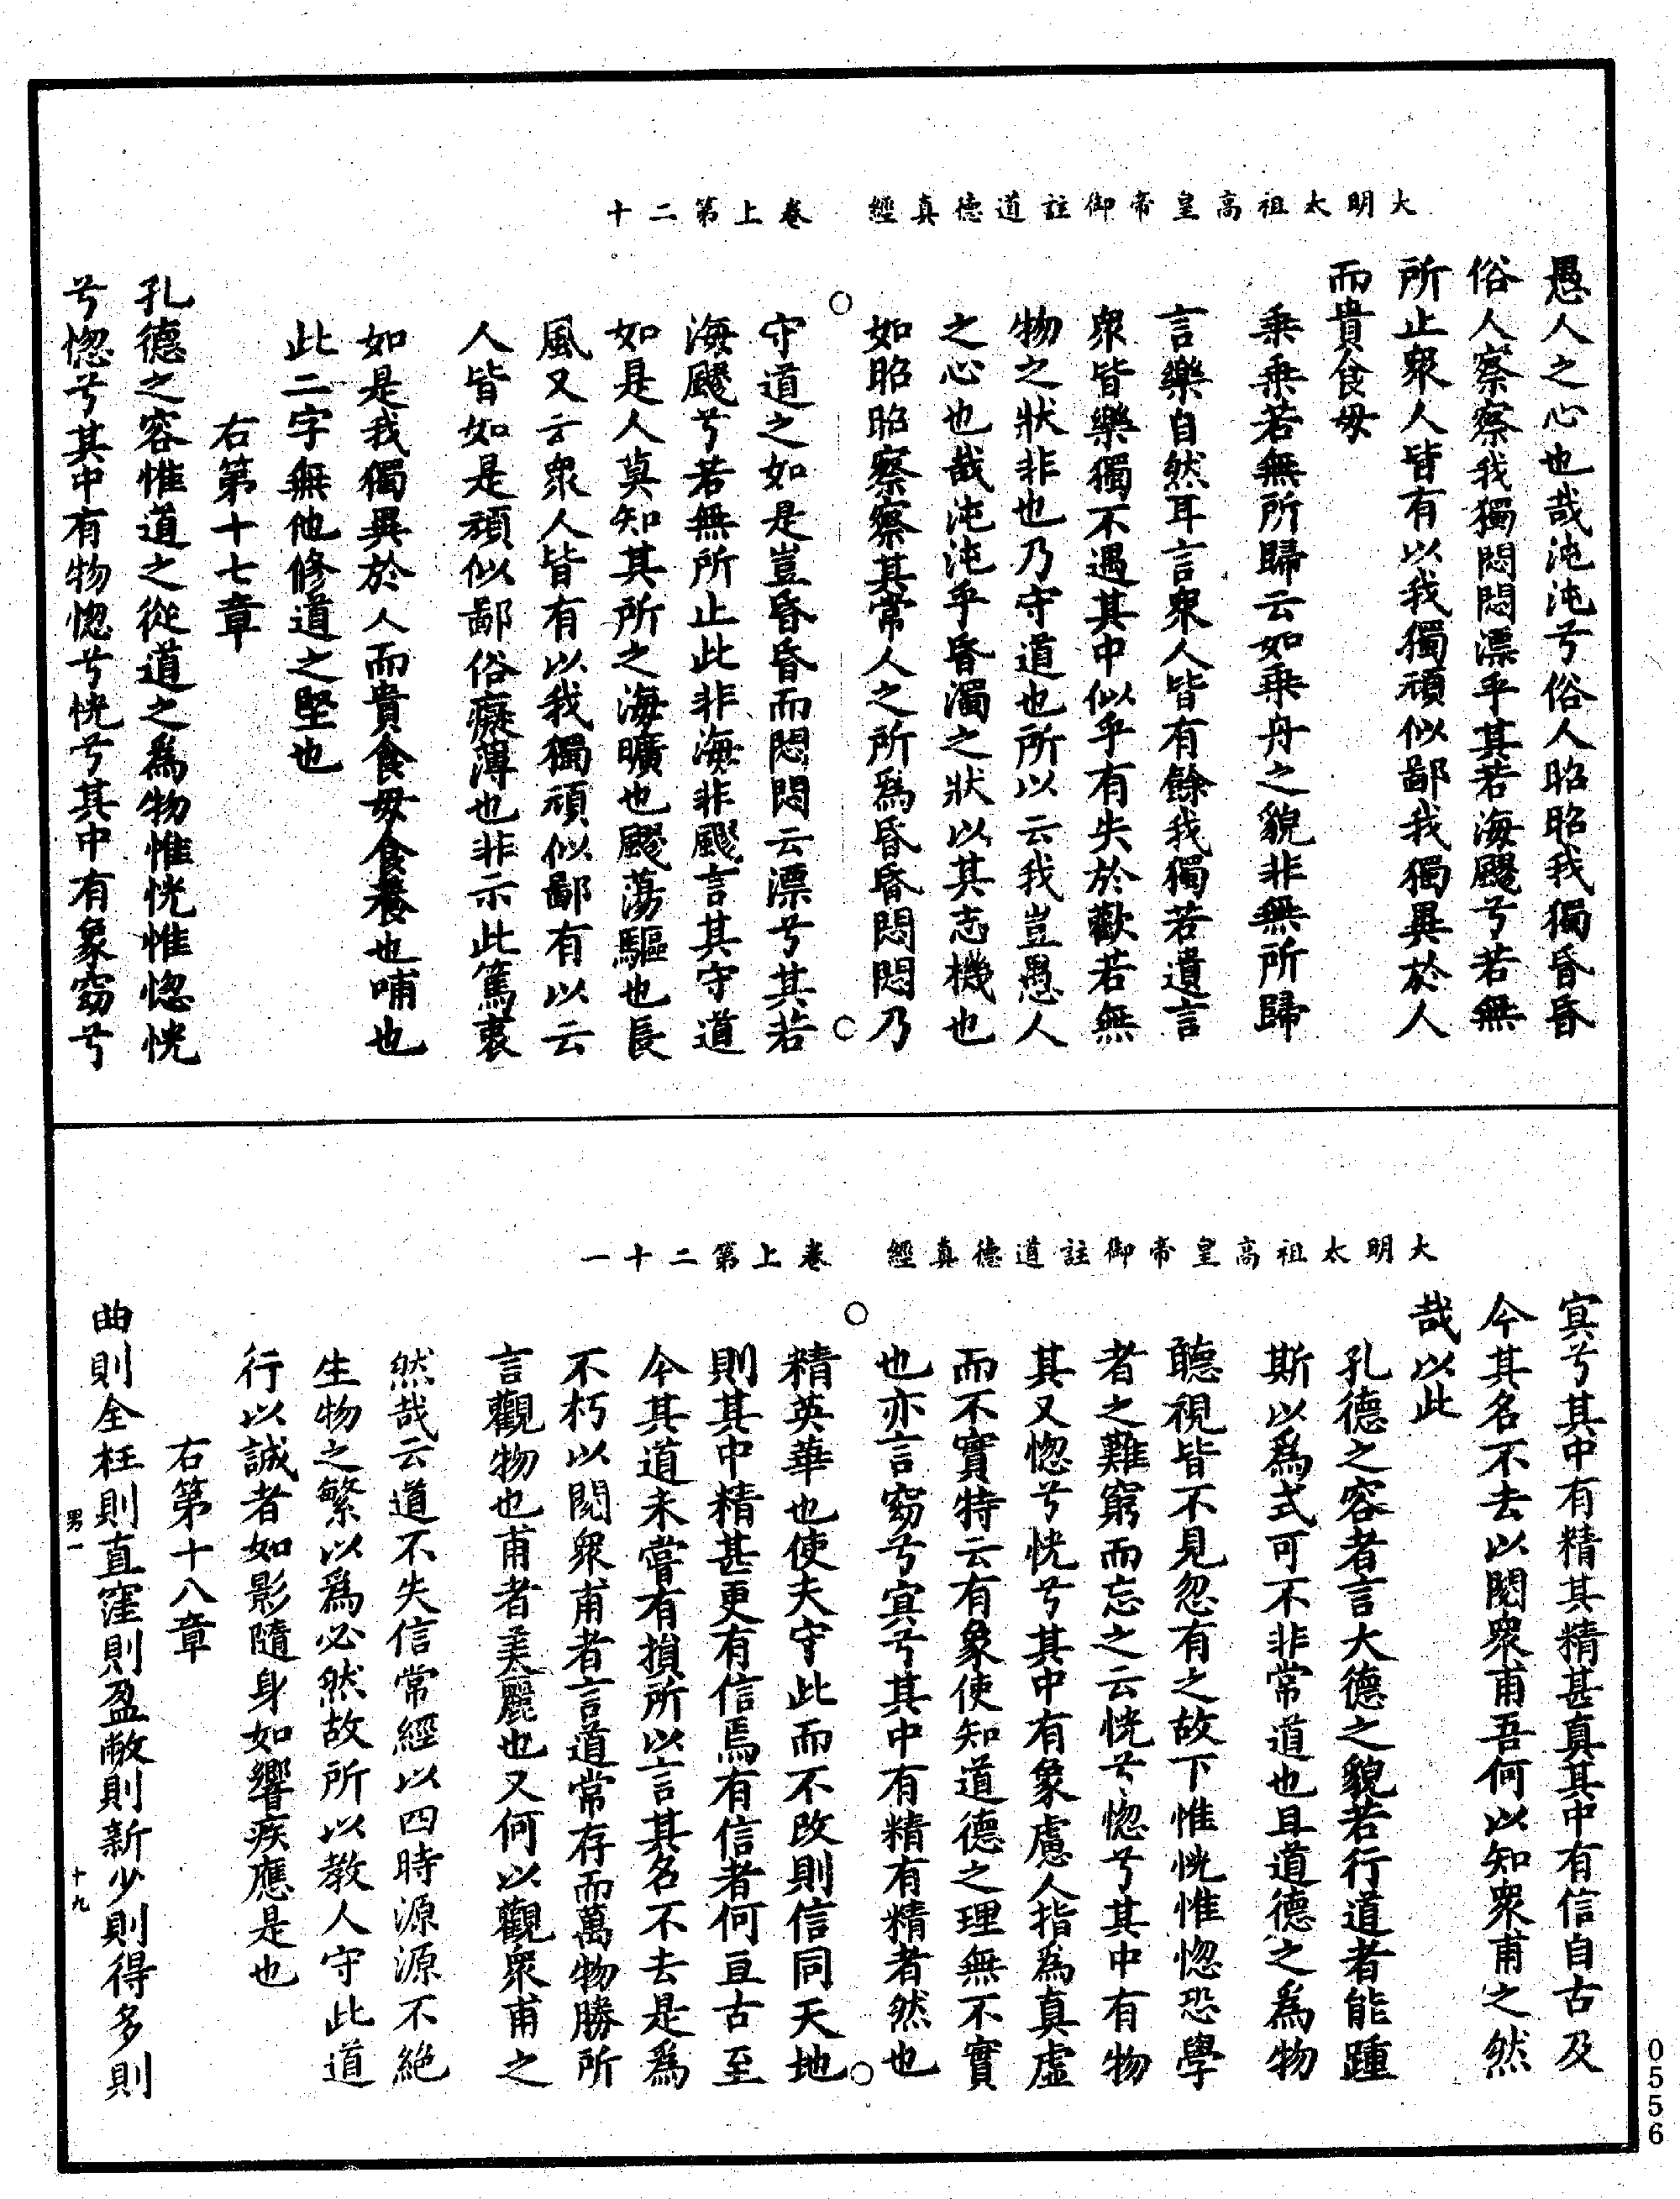 大明太祖高皇帝御註道德真經　卷上第二十
愚人之心也哉沌沌兮俗人昭昭我獨昏昏
俗人察察我獨悶悶漂乎其若海飂兮若無
所止衆人皆有以我獨頑似鄙我獨異於人
而貴食母
乗乗若無所歸云如乗舟之貌非無所歸
言樂自然耳言衆人皆有餘我獨若遺言
衆皆樂獨不遇其中似乎有失於歡若無
物之狀非也乃守道也所以云我豈愚人
之心也哉沌沌乎昏濁之狀以其志機也
如昭昭察察其常人之所爲昏昏悶悶乃
守道之如是豈昏昏而悶悶云漂兮其若
海飂兮若無所止此非海非飂言其守道
如是人莫知其所之海曠也飂蕩驅也長
風又云衆人皆有以我獨頑似鄙有以云
人皆如是頑似鄙俗癡薄也非示此篤衷
如是我獨異於人而貴食母食養也哺也
此二字無他修道之堅也
右第十七章
孔德之容惟道之從道之爲物惟恍惟惚恍
兮惚兮其中有物惚兮恍兮其中有象窈兮
大明太祖高皇帝御註道德真經　卷上第二十一
冥兮其中有精其精甚真其中有信自古及
今其名不去以閱衆甫吾何以知衆甫之然
哉以此
孔德之容者言大德之貌若行道者能踵
斯以爲式可不非常道也且道德之爲物
聽視皆不見忽有之故下惟恍惟惚恐學
者之難窮而忘之云恍兮惚兮其中有物
其又惚兮恍兮其中有象慮人指爲真虛
而不實特云有象使知道德之理無不實
也亦言窈兮冥兮其中有精有精者然也
精英華也使夫守此而不改則信同天地
則其中精甚更有信焉有信者何亘古至
今其道未嘗有損所以言其名不去是爲
不朽以閱衆甫者言道常存而萬物勝所
言觀物也甫者美麗也又何以觀衆甫之
然哉云道不失信常經以四時源源不絕
生物之繁以爲必然故所以教人守此道
行以誠者如影隨身如響疾應是也
右第十八章
曲則全枉則直窪則盈敝則新少則得多則
男一
十九
0556